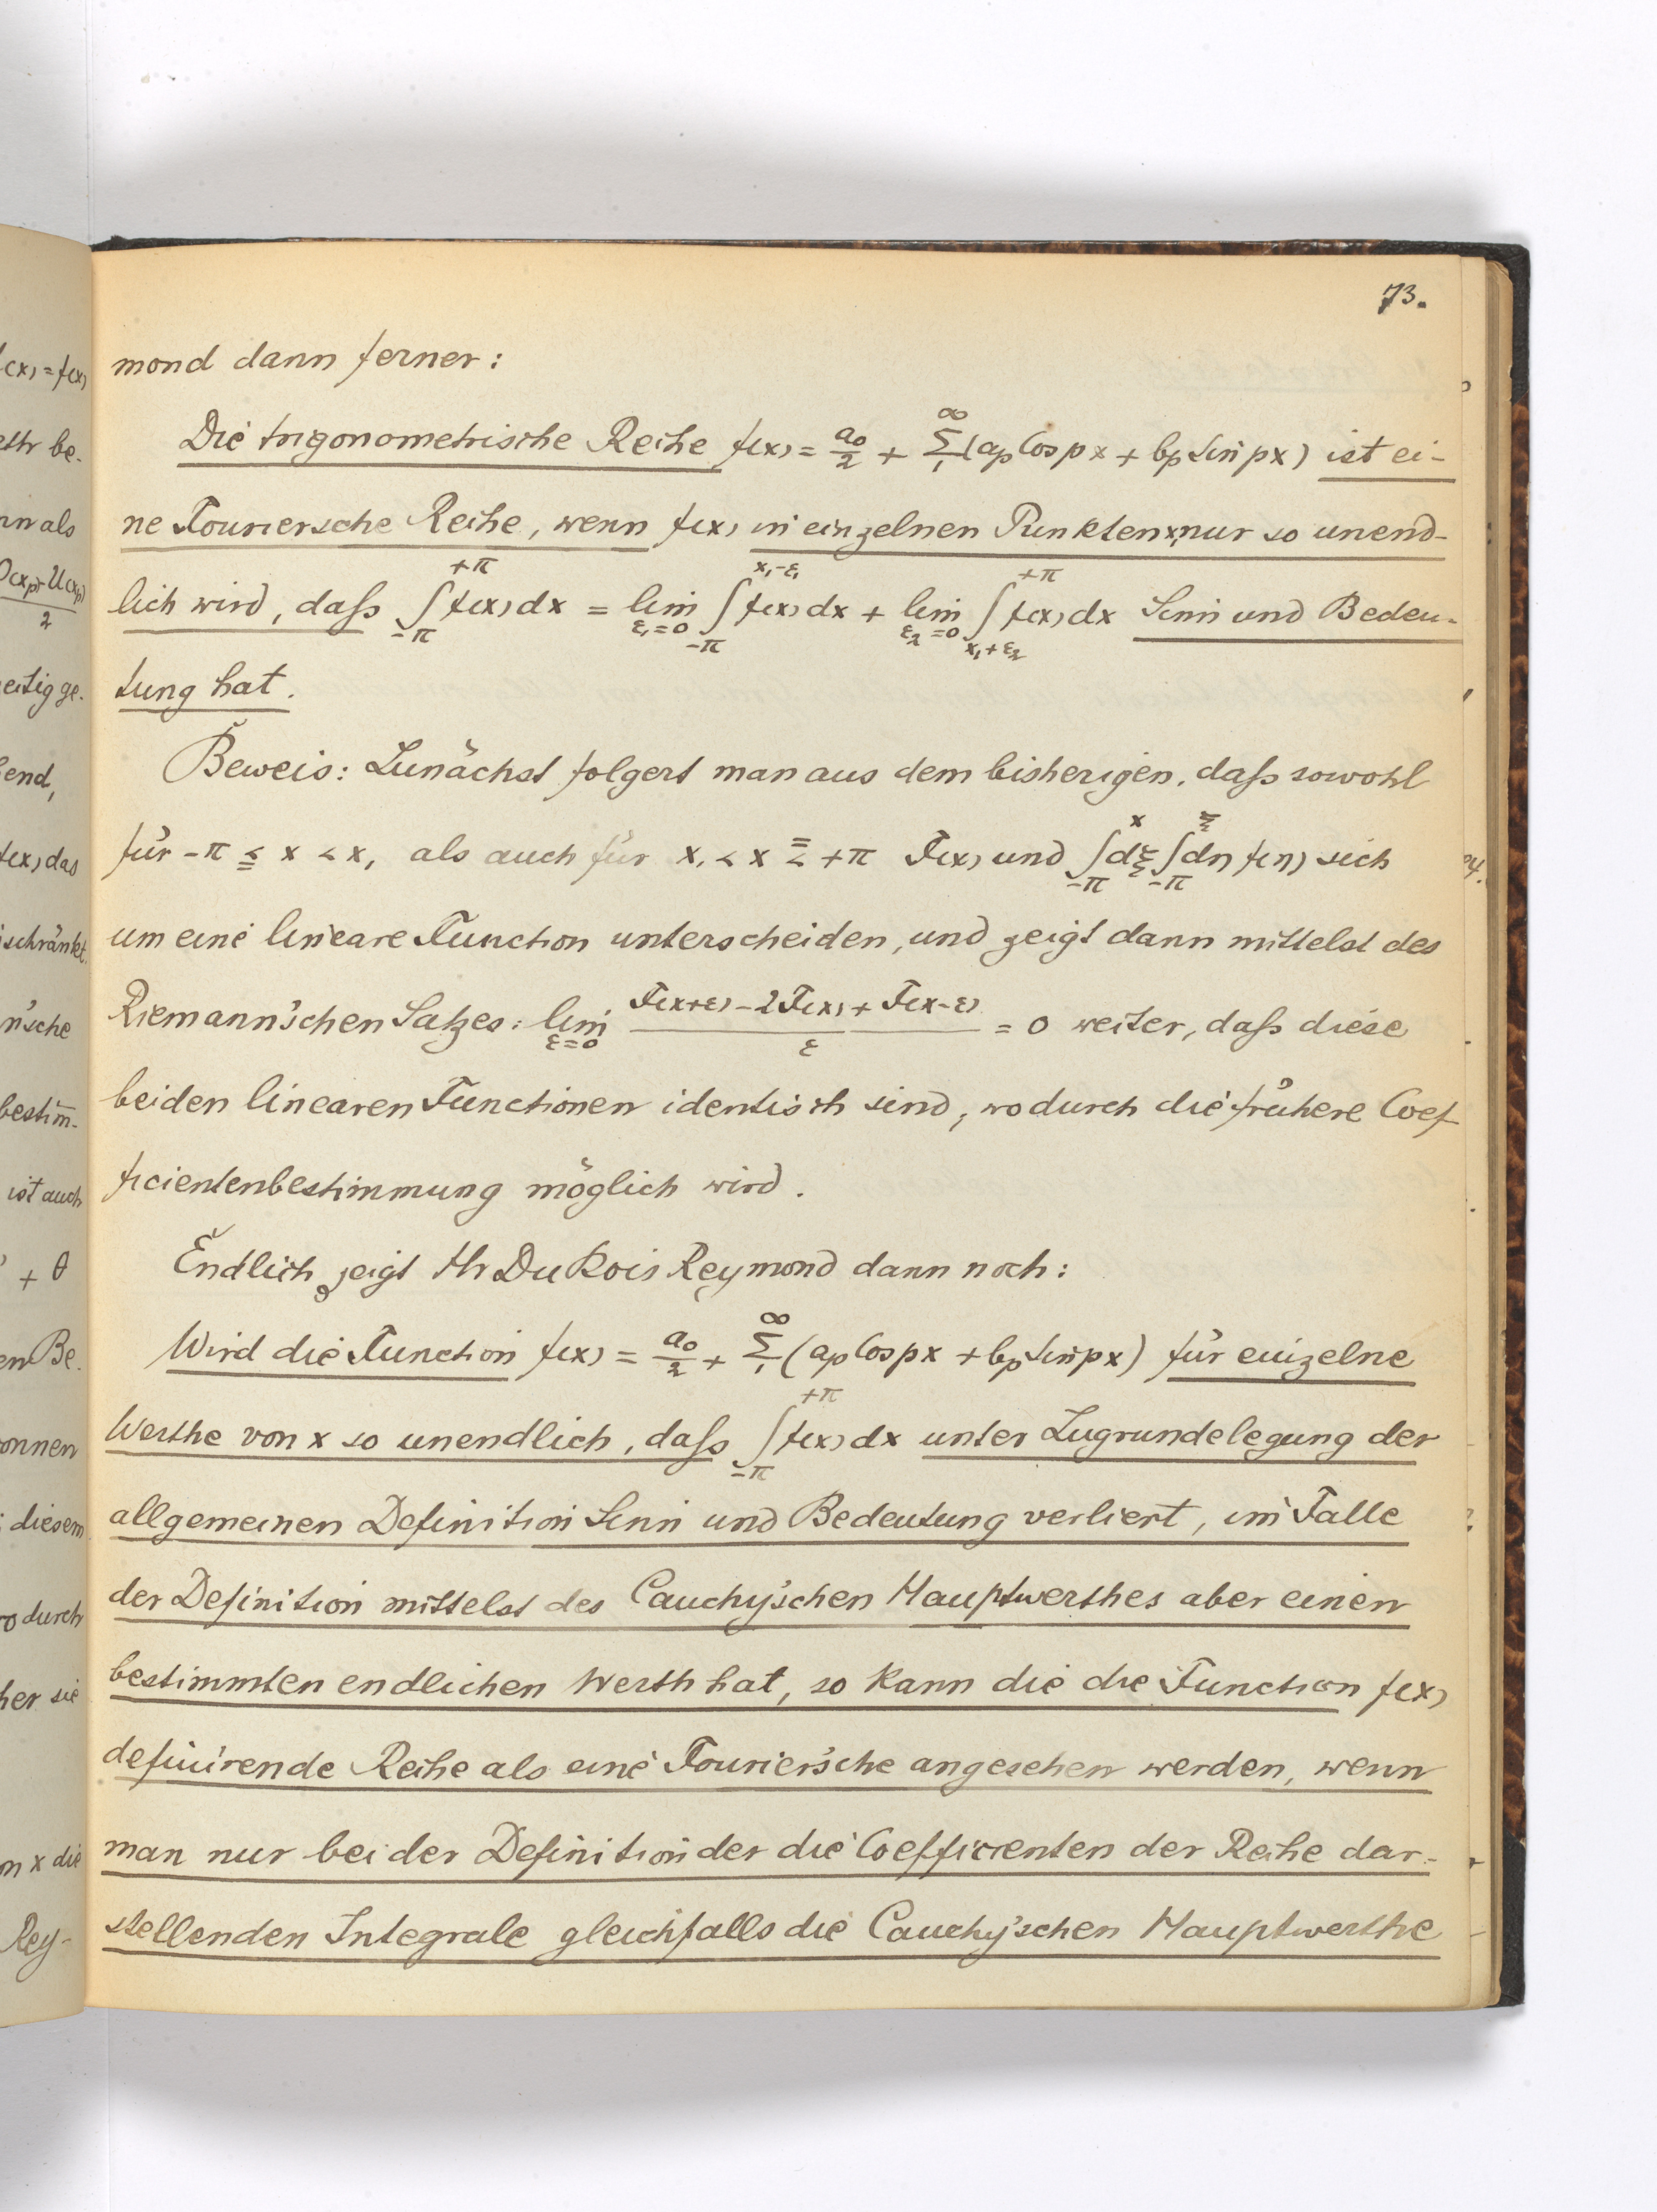 73.
mond dann ferner:
Die trigonometrische Reihe f(x) = a₀/2 + Σ₁^∞ (aₚ Cos px + bₚ Sin px) ist ei-
ne Fouriersche Reihe, wenn f(x) in einzelnen Punkten x₁ nur so unend-
lich wird, daß ∫_{-π}^{+π} f(x) dx = lim_{ε₁=0} ∫_{-π}^{x₁-ε₁} f(x) dx + lim_{ε₂=0} ∫_{x₁+ε₂}^{+π} f(x) dx Sinn und Bedeu-
tung hat.
Beweis: Zunächst folgert man aus dem bisherigen, daß sowohl
für -π ≦ x < x₁ als auch für x₁ < x ≦ +π F(x) und ∫_{-π}^{x} dξ ∫_{-π}^{ξ} dη f(η) sich
um eine lineare Function unterscheiden, und zeigt dann mittelst des
Riemann'schen Satzes: lim_{ε=0} (F(x+ε) - 2F(x) + F(x-ε))/ε = 0 weiter, daß diese
beiden linearen Functionen identisch sind, wodurch die frühere Coef-
ficientenbestimmung möglich wird.
Endlich zeigt Hr Du Bois Reymond dann noch:
Wird die Function f(x) = a₀/2 + Σ₁^∞ (aₚ Cos px + bₚ Sin px) für einzelne
Werthe von x so unendlich, daß ∫_{-π}^{+π} f(x) dx unter Zugrundelegung der
allgemeinen Definition Sinn und Bedeutung verliert, im Falle
der Definition mittelst des Cauchy'schen Hauptwerthes aber einen
bestimmten endlichen Werth hat, so kann die die Function f(x)
definirende Reihe als eine Fourier'sche angesehen werden, wenn
man nur bei der Definition der die Coefficienten der Reihe dar-
stellenden Integrale gleichfalls die Cauchy'schen Hauptwerthe